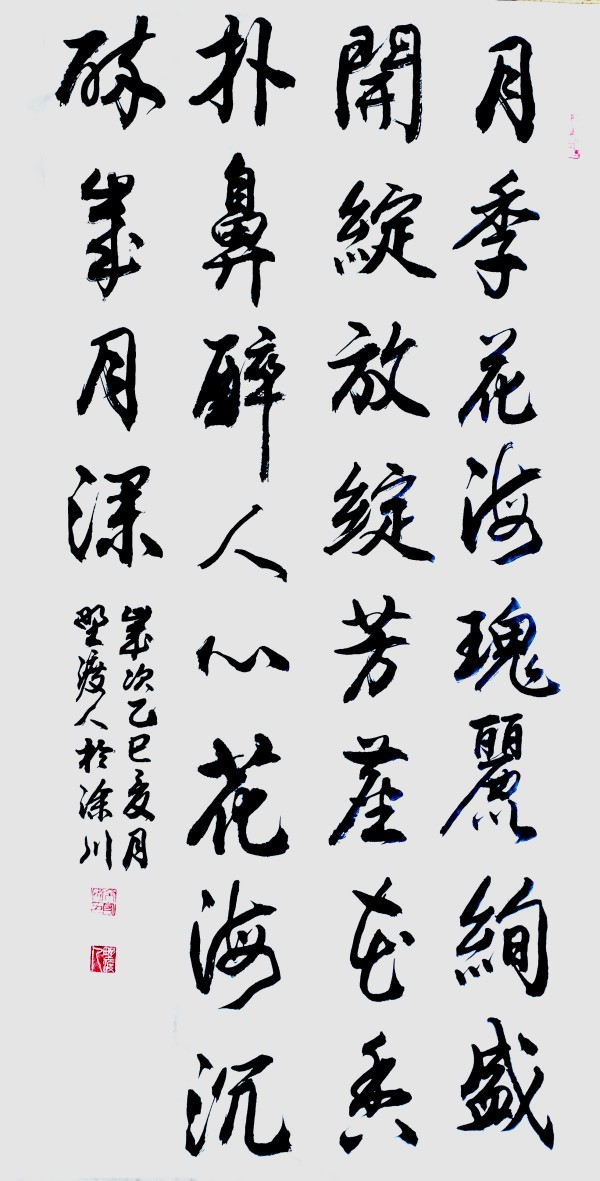 月季花海瑰麗絢盛
開綻放綻芳花香
扑鼻醉人心花海沉
醉歲月深
歲次乙巳夏月
野渡人於涂川